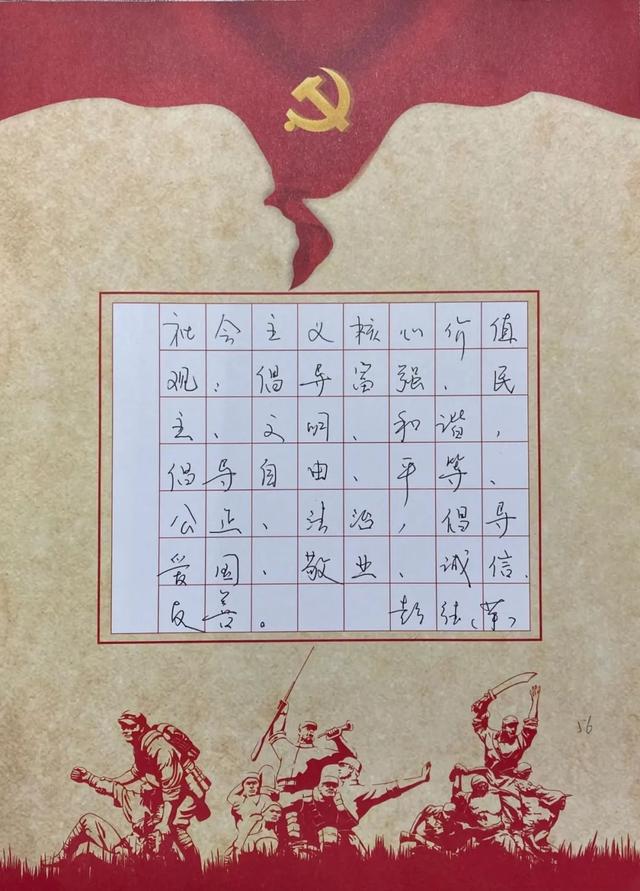 社会主义核心价值
观：倡导富强、民
主、文明、和谐，
倡导自由、平等、
公正、法治，倡导
爱国、敬业、诚信、
友善。 彭
56